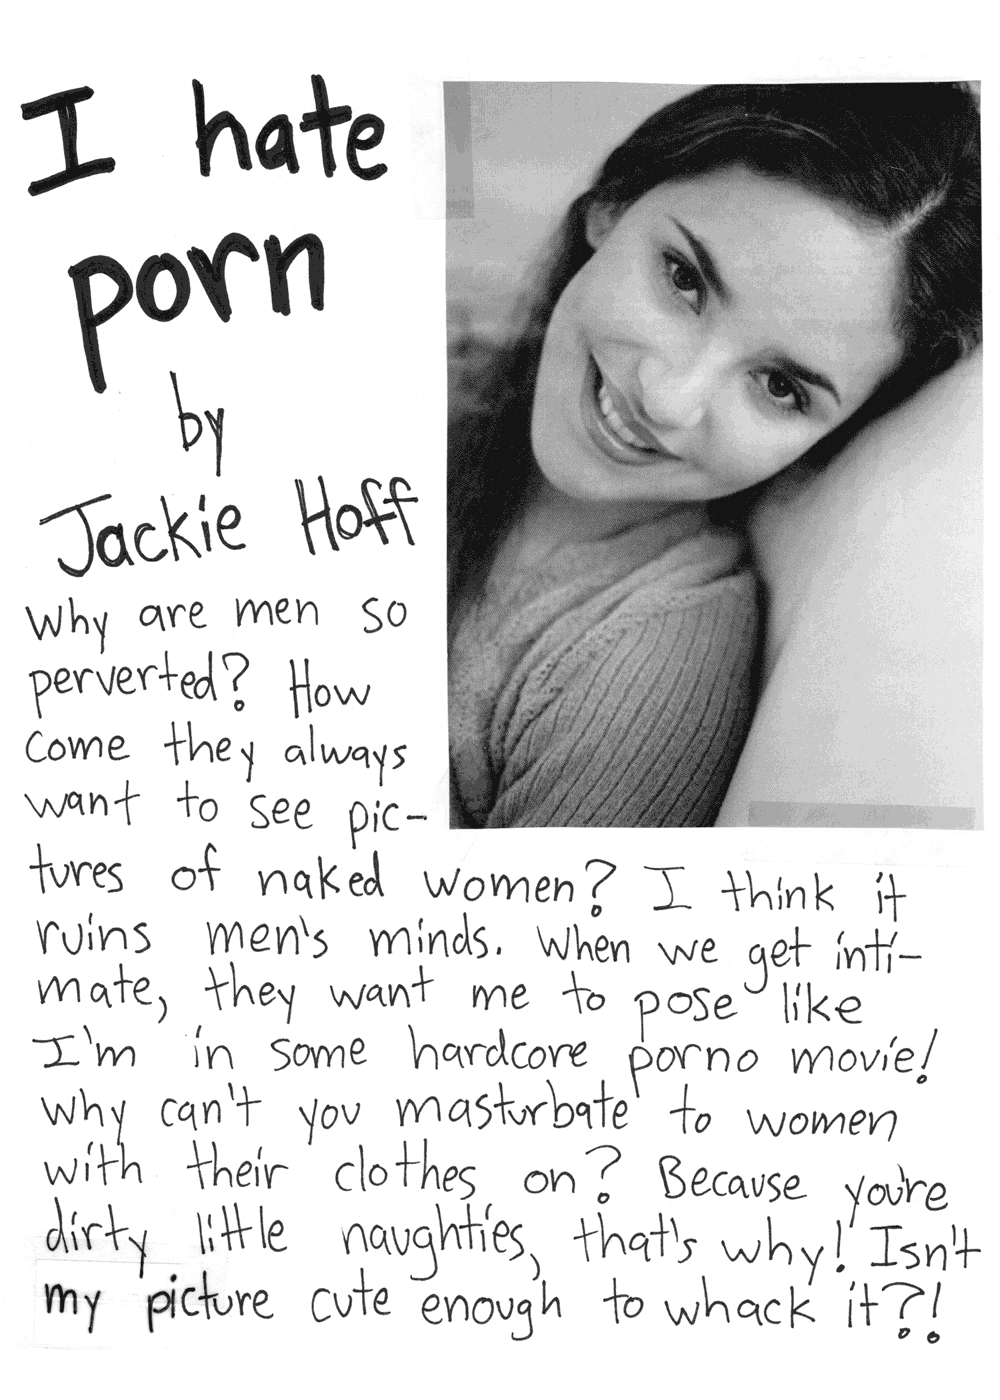 I hate
porn
by
Jackie Hoff
Why are men so
perverted? How
come they always
want to see pic-
tures of naked women? I think it
ruins men's minds. When we get inti-
mate, they want me to pose like
I'm in some hardcore porno movie!
Why can't you masturbate to women
with their clothes on? Because you're
dirty little naughties, that's why! Isn't
my picture cute enough to whack it?!